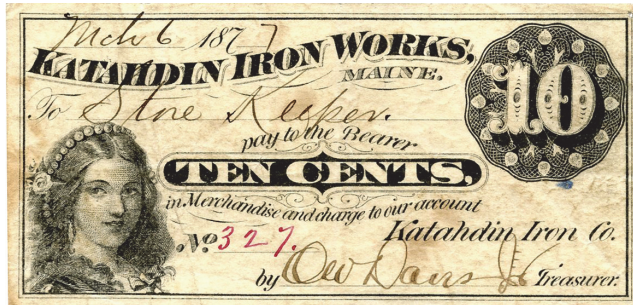 Mch 6 1877
KATAHDIN IRON WORKS,
MAINE.
10
To Store Keeper.
pay to the Bearer
TEN CENTS,
in Merchandise and charge to our account
No 327. Katahdin Iron Co.
by OW Davis Jr Treasurer.